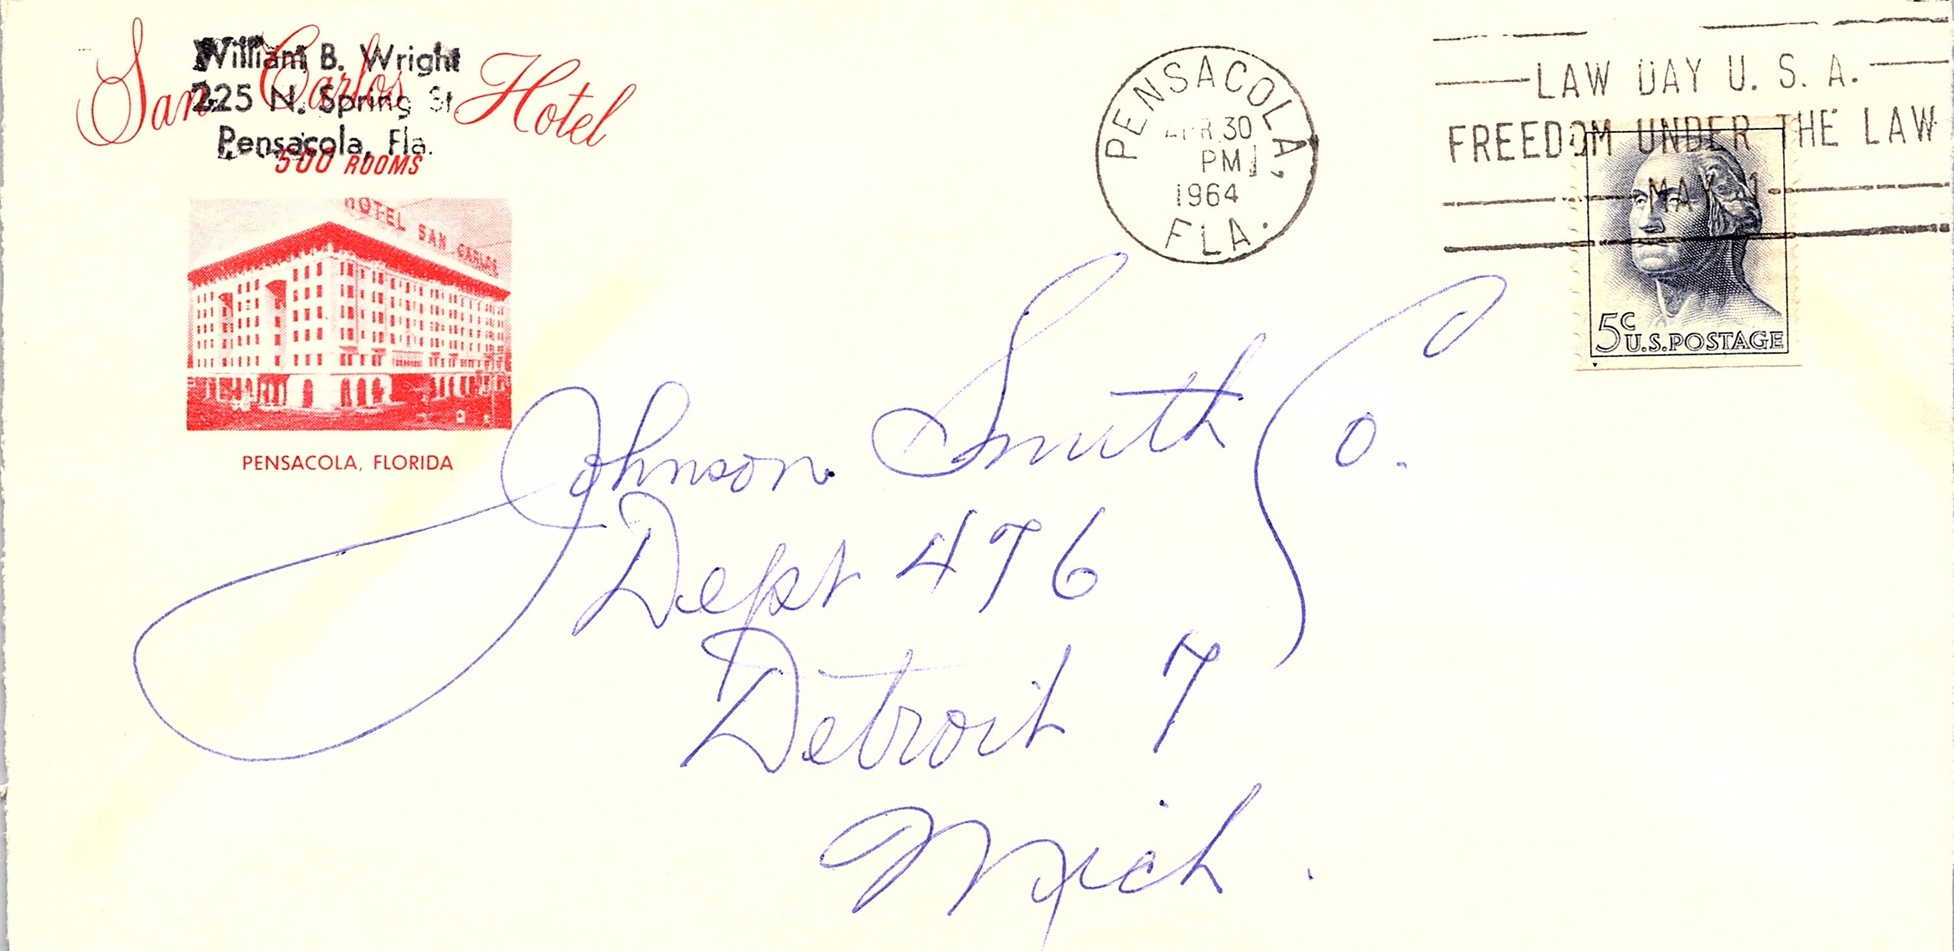 San Carlos Hotel
William B. Wright
225 N. Spring St.
Pensacola, Fla.
500 ROOMS
HOTEL SAN CARLOS
PENSACOLA, FLORIDA
PENSACOLA, FLA.
APR 30
PM
1964
LAW DAY U. S. A.
FREEDOM UNDER THE LAW
MAY 1
5c U.S. POSTAGE
Johnson Smith Co.
Dept 476
Detroit 7
Mich.